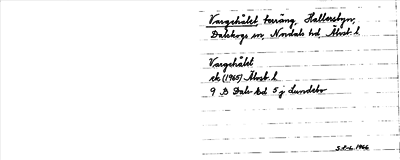 Vargehålet, terräng, Hallersbyn,
Dalskogs sn, Nordals hd, Älvsb. l
Vargehålet
ek (1965) Älvsb. l
9 B Dals-Ed 5 j Lundebo
S.E.L. 1966